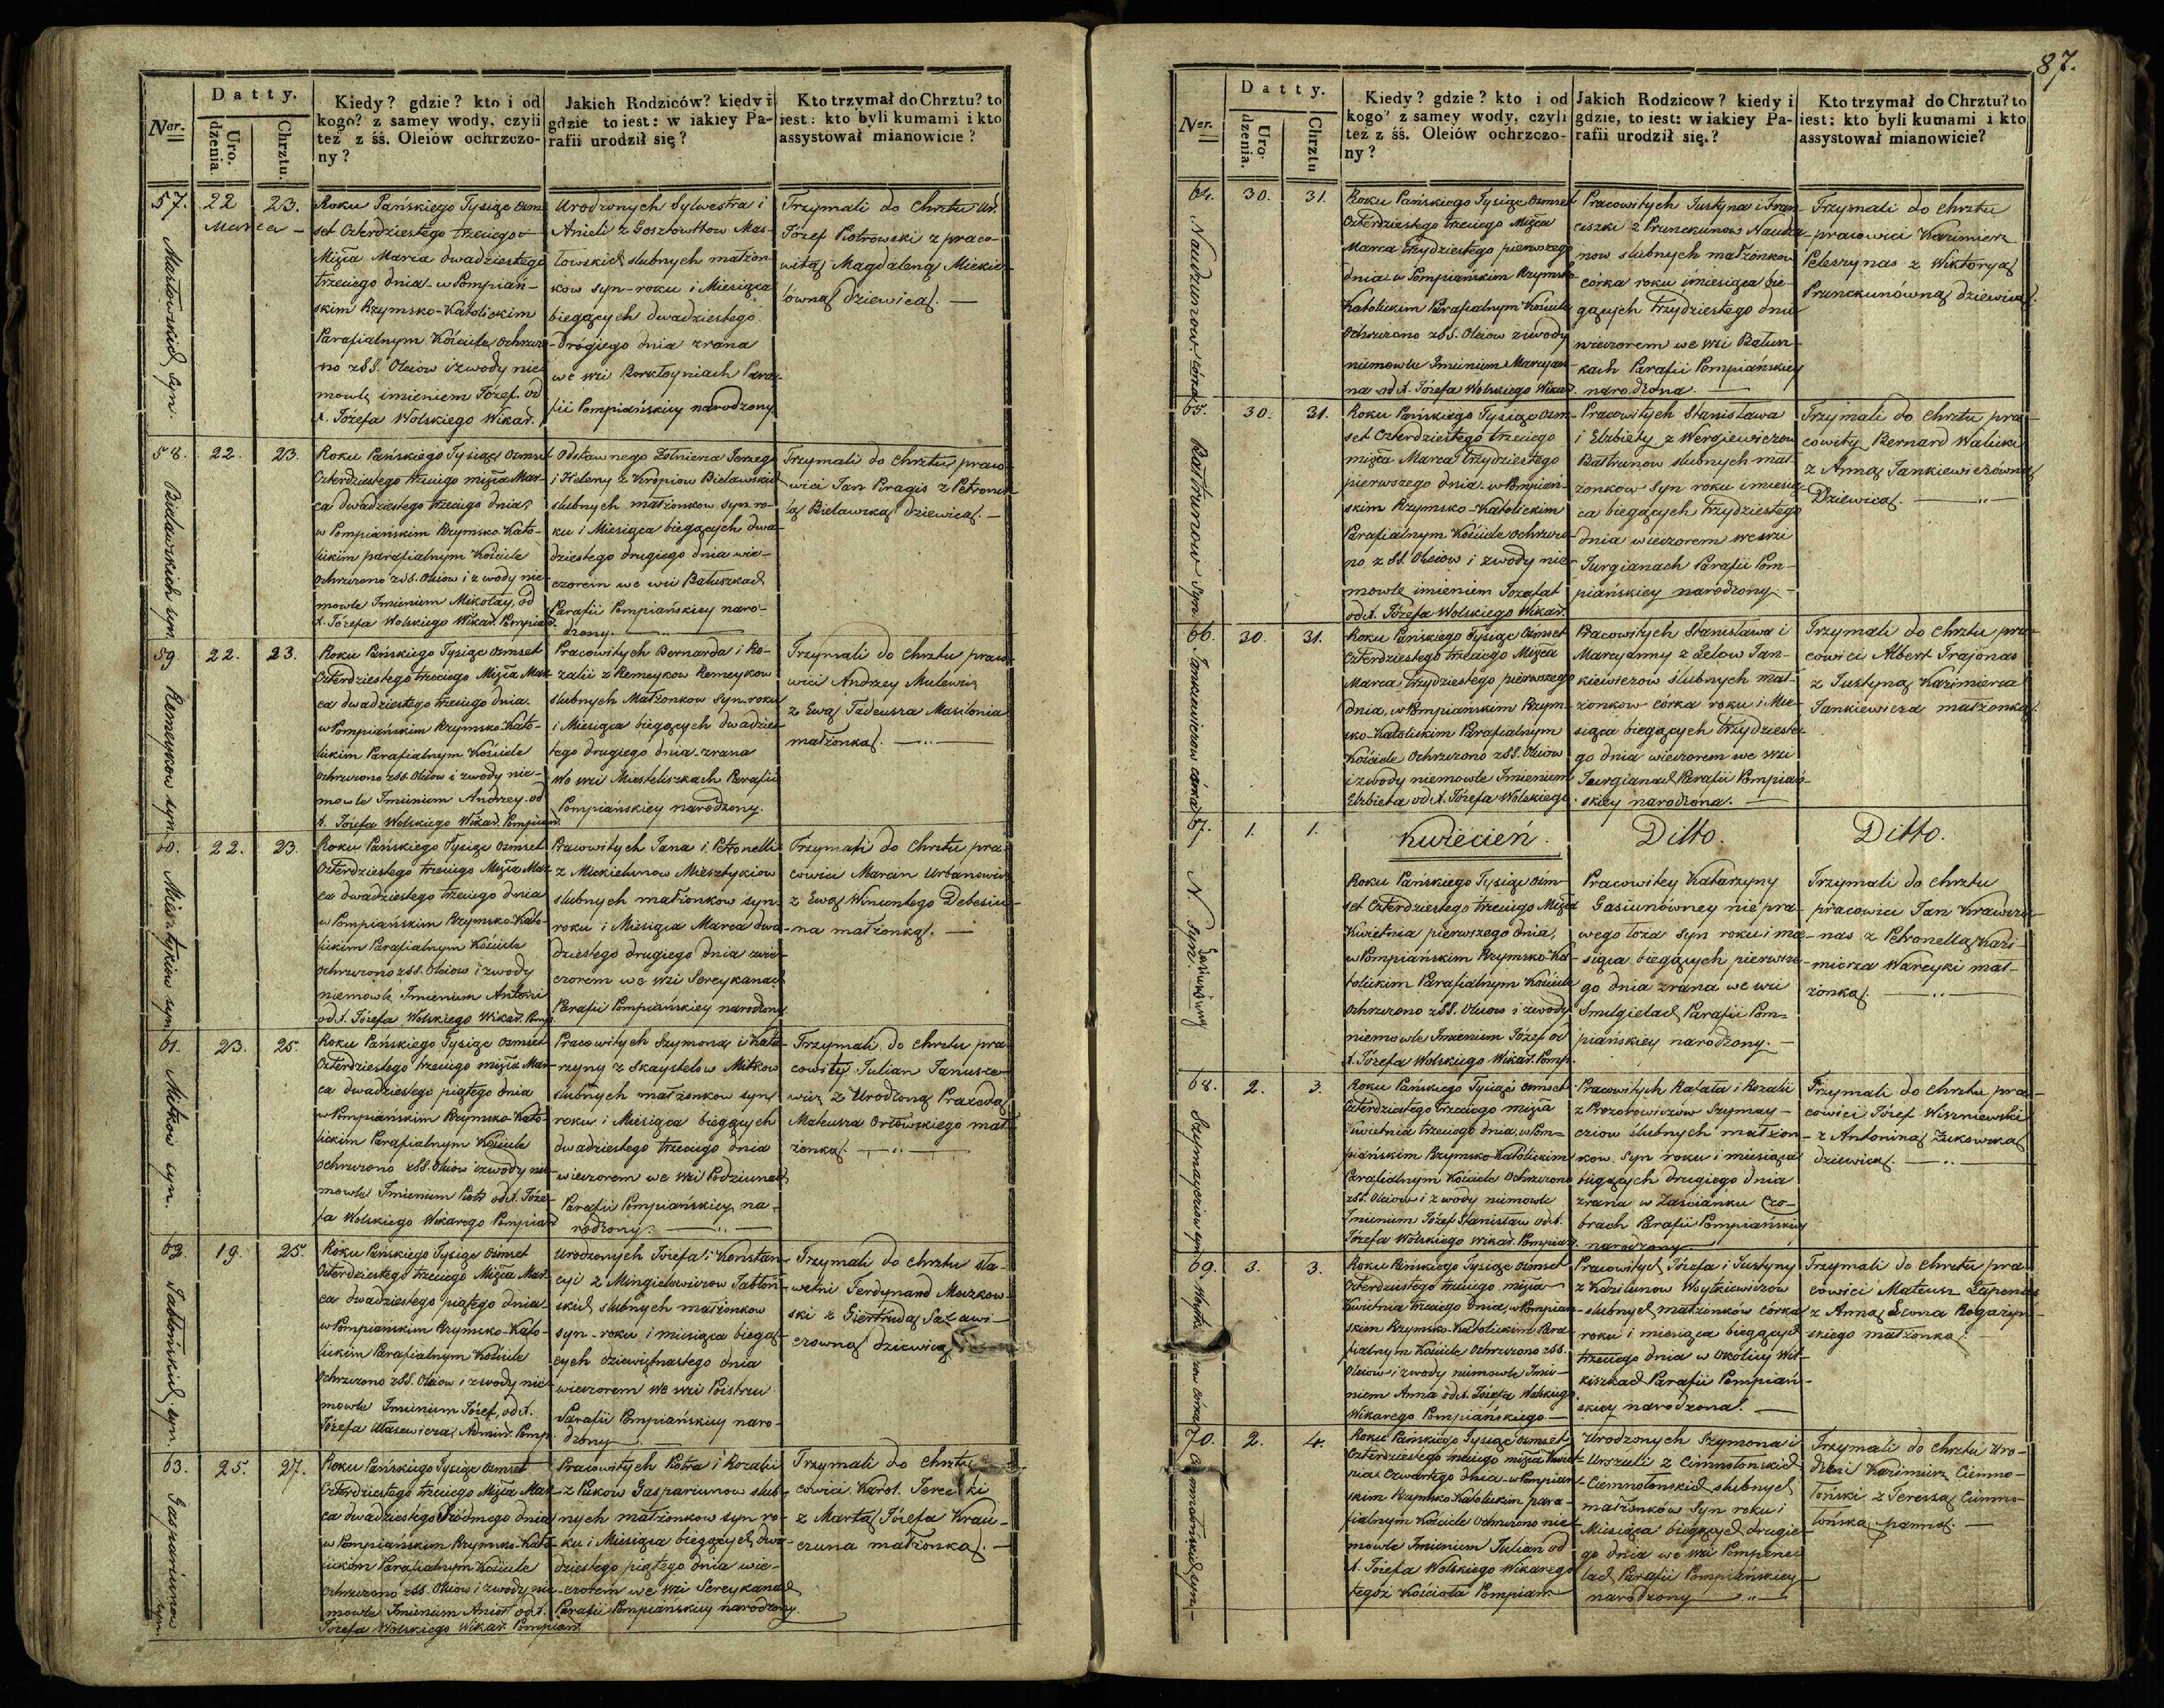 Ner.
Datty.
Uro. dzenia
Chrztu.
Kiedy? gdzie? kto i od
kogo? z samey wody, czyli
też z śś. Oleiów ochrzczo-
ny?
Jakich Rodziców? kiedy i
gdzie to iest: w iakiey Pa-
rafii urodził się?
Kto trzymał do Chrztu? to
iest: kto byli kumami i kto
assystował mianowicie?
57.
Masłowskich syn.
22
23.
Marca
Roku Pańskiego Tysiąc osm-
set Czterdziestego trzeciego
Mięsia Marca dwadziestego
trzeciego dnia w Pompiań-
skim Rzymsko-Katolickim
Parafialnym Kościele Ochrzczo-
no z SS. Oleiow i z wody nie-
mowlę imieniem Józef. od
X. Józefa Wolskiego Wikar.
Urodzonych Sylwestra i
Anieli z Gosztowttow Mas-
łowskich slubnych małżon-
kow syn roku i Miesiąca
biegących dwadziestego
drugiego dnia zrana
we wsi Borkłoyniach Para-
fii Pompiańskiey narodzony
Trzymali do chrztu Ur.
Józef Piotrowski z praco-
witą Magdaleną Mickie-
łówną dziewicą.
58.
Bielawskich syn
22.
23.
Roku Pańskiego Tysiąc osmset
Czterdziestego trzeciego mięsia Mar-
ca dwadziestego trzeciego dnia
w Pompiańskim Rzymsko-Kato-
lickim parafialnym Kościele
Ochrzczono z SS. Oleiow i z wody nie-
mowle Imieniem Mikołay, od
X. Józefa Wolskiego Wikar. Pompiań.
Odstawnego Żołnierza Jerzego
i Heleny z Kropiow Bielawskich
slubnych małżonkow syn ro-
ku i Miesiąca biegących dwa-
dziestego drugiego dnia wie-
czorem we wsi Bałuszkach
Parafii Pompiańskiey naro-
dzony.
Trzymali do chrztu praco-
wici Jan Peragis z Petronel-
lą Bielawską dziewicą.
59.
Remeykow syn
22.
23.
Roku Pańskiego Tysiąc osmset
Czterdziestego trzeciego Mięsia Mar-
ca dwadziestego trzeciego dnia
w Pompiańskim Rzymsko-Kato-
lickim Parafialnym Kościele
Ochrzczono z SS. Oleiow i z wody nie-
mowle Imieniem Andrzey. od
X. Józefa Wolskiego Wikar. Pompiań.
Pracowitych Bernarda i Ro-
zalii z Remeykow Remeykow
slubnych Małżonkow syn roku
i Miesiąca biegących dwadzies-
tego drugiego dnia zrana
we wsi Miesteliszkach Parafii
Pompiańskiey narodzony.
Trzymali do chrztu praco-
wici Andrzey Mulewicz
z Ewą Tadeusza Masilonia
małżonką.
60.
Miesztykiow syn
22.
23.
Roku Pańskiego Tysiąc osmset
Czterdziestego trzeciego Mięsia Mar-
ca dwadziestego trzeciego dnia
w Pompiańskim Rzymsko-Kato-
lickim Parafialnym Kościele
Ochrzczono z SS. Oleiow i z wody
niemowlę Imieniem Antoni
od X. Józefa Wolskiego Wikar. Pomp.
Pracowitych Jana i Petronelli
z Mickielunow Miesztykiow
slubnych małżonkow syn
roku i Miesiąca Marca dwa-
dziestego drugiego dnia wie-
czorem we wsi Sereykanach
Parafii Pompiańskiey narodzony
Trzymali do chrztu pra-
cowici Marcin Urbanowicz
z Ewą Wincentego Debesiu-
na małżonką.
61.
Mitkow syn.
23.
25.
Roku Pańskiego Tysiąc osmset
Czterdziestego trzeciego mięsia Mar-
ca dwadziestego piątego dnia
w Pompiańskim Rzymsko-Kato-
lickim Parafialnym Kościele
Ochrzczono z SS. Oleiow i z wody nie-
mowle Imieniem Piotr od X. Józe-
fa Wolskiego Wikarego Pompiań
Pracowitych Szymona i Kata-
rzyny z Skaystelow Mitkow
slubnych małżonkow syn
roku i Miesiąca biegących
dwadziestego trzeciego dnia
wieczorem we wsi Podziunach
Parafii Pompiańskiey na-
rodzony.
Trzymali do chrztu pra-
cowity Julian Janusze-
wicz z Urodzoną Praxedą
Mateusza Orłowskiego mał-
żonką.
62.
Jabłońskich syn.
19.
25.
Roku Pańskiego Tysiąc Osmset
Czterdziestego trzeciego Mięsia Mar-
ca dwadziestego piątego dnia
w Pompiańskim Rzymsko-Kato-
lickim Parafialnym Kościele
Ochrzczono z SS. Oleiow i z wody nie-
mowle Imieniem Józef, od X.
Józefa Ułasewicza, Admin. Pomp.
Urodzonych Józefa i Konstan-
cyi z Mingiełowiczow Jabłoń-
skich slubnych małżonkow
syn roku i miesiąca biegą-
cych dziewiętnastego dnia
wieczorem we wsi Poistrzu
Parafii Pompiańskiey naro-
dzony.
Trzymali do chrztu sła-
wetni Ferdynand Mazkow-
ski z Giertrudą
czowną dziewicą
63.
Gaspariunow syn
25.
27.
Roku Pańskiego Tysiąc Osmset
Czterdziestego trzeciego Mięsia Mar-
ca dwadziestego Siódmego dnia
w Pompiańskim Rzymsko-Kato-
lickim Parafialnym Kościele
Ochrzczono z SS. Oleiow i z wody nie-
mowle Imieniem Anioł od X.
Józefa Wolskiego Wikar. Pompiań.
Pracowitych Piotra i Rozalii
z Pukow Gaspariunow slub-
nych małżonkow syn ro-
ku i Miesiąca biegących dwa-
dziestego piątego dnia wie-
czorem we wsi Sereykanach
Parafii Pompiańskiey narodzony.
Trzymali do chrztu
cowici Karol
z Martą Józefa Krau-
czuna małżonką.
87.
Ner.
Datty.
Uro. dzenia.
Chrztu
Kiedy? gdzie? kto i od
kogo? z samey wody, czyli
też z śś. Oleiów ochrzczo-
ny?
Jakich Rodzicow? kiedy i
gdzie, to iest: w iakiey Pa-
rafii urodził się.?
Kto trzymał do Chrztu? to
iest: kto byli kumami i kto
assystował mianowicie?
64.
Naudziunow córka
30.
31.
Roku Pańskiego Tysiąc Osmset
Czterdziestego trzeciego Mięsia
Marca trzydziestego pierwszego
dnia w Pompiańskim Rzymsko-
Katolickim Parafialnym Kościele
Ochrzczono z SS. Oleiow z i wody
niemowle Imieniem Marcyan-
na od X. Józefa Wolskiego Wikar.
Pracowitych Justyna i Fran-
ciszki z Prunckunow Naudziu-
now slubnych małżonkow
córka roku i miesiąca bie-
gących Trzydziestego dnia
wieczorem we wsi Bałusz-
kach Parafii Pompiańskiey
narodzona.
Trzymali do chrztu
pracowici Kazimierz
Peleszynas z Wiktoryą
Prunckunówną dziewicą.
65.
Bałtrunow syn
30.
31.
Roku Pańskiego Tysiąc Osm-
set Czterdziestego trzeciego
mięsia Marca trzydziestego
pierwszego dnia w Pompiań-
skim Rzymsko-Katolickim
Parafialnym Kościele Ochrzczo-
no z SS. Oleiow i z wody nie-
mowle imieniem Jozafat
od X. Józefa Wolskiego Wikar.
Pracowitych Stanisława
i Elżbiety z Werojewiczow
Bałtrunow slubnych mał-
żonkow syn roku i miesią-
ca biegących Trzydziestego
dnia wieczorem we wsi
Jurgianach Parafii Pom-
piańskiey narodzony.
Trzymali do chrztu pra-
cowity Bernard Walicki
z Anną Jankiewiczówną
Dziewicą.
66.
Jankiewiczow córka
30.
31.
Roku Pańskiego Tysiąc Osmset
Czterdziestego trzeciego Mięsia
Marca, trzydziestego pierwszego
dnia, w Pompiańskim Rzym-
sko-Katolickim Parafialnym
Kościele Ochrzczono z SS. Oleiow
i z wody niemowle Imieniem
Elżbieta od X. Józefa Wolskiego.
Pracowitych Stanisława i
Marcyanny z Lelow Jan-
kiewiczow slubnych mał-
żonkow córka roku i Mie-
siąca biegących Trzydzieste-
go dnia wieczorem we wsi
Jurgianach Parafii Pompiań-
skiey narodzona.
Trzymali do chrztu pra-
cowici Albert Trajonas
z Justyną Kazimierza
Jankiewicza małżonką.
67.
N. Gasiunówney Syn.
1.
1.
Kwiecień.
Ditto.
Ditto.
Roku Pańskiego Tysiąc Osm-
set Czterdziestego trzeciego Mięsia
Kwietnia pierwszego dnia,
w Pompiańskim Rzymsko-Ka-
tolickim Parafialnym Kościele
Ochrzczono z SS. Oleiow i z wody
niemowle Imieniem Józef od
X. Józefa Wolskiego Wikar. Pomp.
Pracowitey Katarzyny
Gasiunówney niepra-
wego łoża syn roku i mie-
siąca biegących pierwsze-
go dnia zrana we wsi
Smilgielach Parafii Pom-
piańskiey narodzony.
Trzymali do chrztu
pracowici Jan Krawczu-
nas z Petronellą Kazi-
mierza Wareyki mał-
żonką.
68.
Szymaycziow syn
2.
3.
Roku Pańskiego Tysiąc Osmset
Czterdziestego trzeciego mięsia
Kwietnia trzeciego dnia, w Pom-
piańskim Rzymsko-Katolickim
Parafialnym Kościele Ochrzczono
z SS. Oleiow i z wody niemowle
Imieniem Józef Stanisław od X.
Józefa Wolskiego Wikar. Pompiań.
Pracowitych Rafała i Rozalii
z Prozorowiczow Szymay-
cziow slubnych małżon-
kow syn roku i miesiąca
biegących drugiego dnia
zrana w Zaścianku Czo-
brach Parafii Pompiańskiey
narodzony
Trzymali do chrztu pra-
cowici Józef Wiszniewski
z Antoniną Żukowską
dziewicą.
69.
3.
3.
Roku Pańskiego Tysiąc Osmset
Czterdziestego trzeciego mięsia
Kwietnia trzeciego dnia, w Pompiań-
skim Rzymsko-Katolickim Para-
fialnym Kościele Ochrzczono z SS.
Oleiow i z wody niemowle Imie-
niem Anna od X. Józefa Wolskiego
Wikarego Pompiańskiego
Pracowitych Józefa i Justyny
z Karsiunow Woytkiewiczow
slubnych małżonków córka
roku i miesiąca biegących
trzeciego dnia w okolicy Wil-
kiszkach Parafii Pompiań-
skiey narodzona.
Trzymali do chrztu pra-
cowici Mateusz Łapenas
z Anną Leona
skiego małżonką.
70.
Ciemnołońskich syn
2.
4.
Roku Pańskiego Tysiąc osmset
Czterdziestego trzeciego mięsia Kwiet-
nia Czwartego dnia w Pompiań-
skim Rzymsko-Katolickim para-
fialnym Kościele Ochrzczono nie-
mowle Imieniem Julian od
X. Józefa Wolskiego Wikarego
tegoż Kościoła Pompiań.
Urodzonych Szymona i
Urszuli z Ciemnołonskich
Ciemnołonskich slubnych
małżonków syn roku i
Miesiąca biegących drugie-
go dnia we wsi Pompene-
lach Parafii Pompiańskiey
narodzony
Trzymali do chrztu Uro-
dzeni Kazimierz Ciemno-
łoński z Teressą Ciemno-
łońską panną.